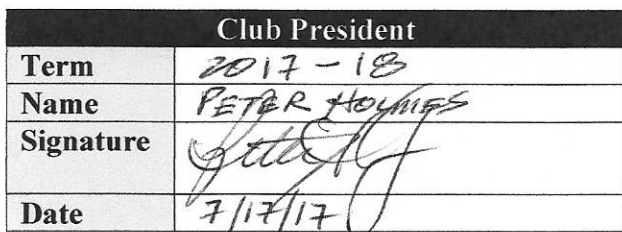 Club President
Term 2017-18
Name PETER HOLMES
Signature
Date 7/17/17